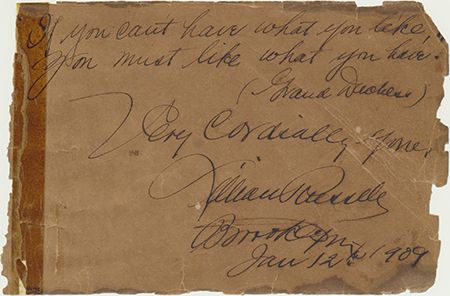 If you cant have what you like,
you must like what you have.
(Grand Duchess)
Very Cordially yours,
Lillian Russell
Brooklyn
Jan 12th 1909